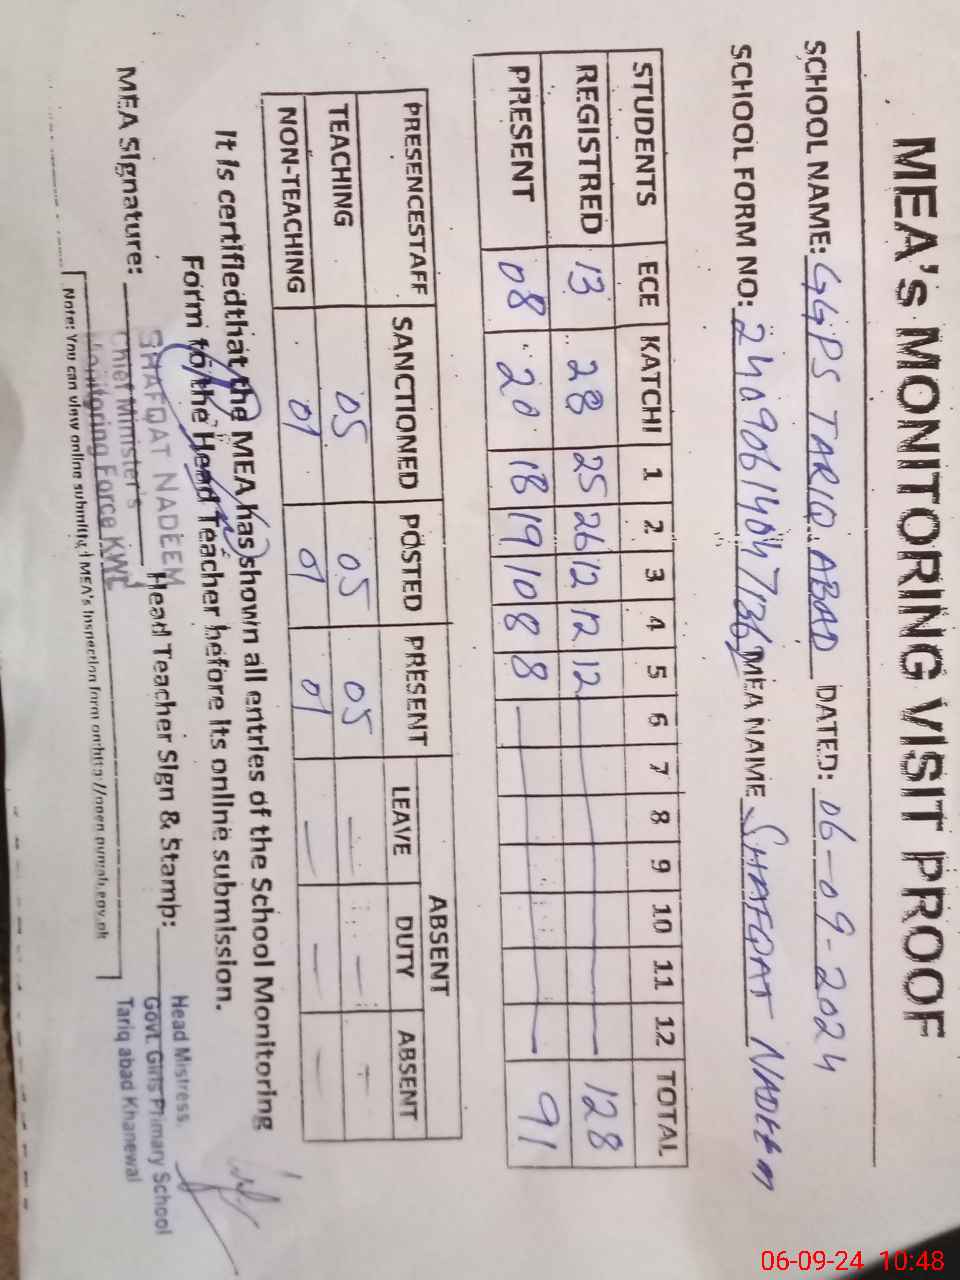 MEA's MONITORING VISIT PROOF
SCHOOL NAME: GGPS TARIQ ABAD DATED: 06-09-2024
SCHOOL FORM NO: MEA NAME SHAFQAT NADEEM
STUDENTS ECE KATCHI 1 2 3 4 5 6 7 8 9 10 11 12 TOTAL
REGISTRED 13 28 25 26 12 12 12 128
PRESENT 08 20 18 19 10 8 8 91
PRESENCESTAFF SANCTIONED POSTED PRESENT ABSENT
LEAVE DUTY ABSENT
TEACHING 05 05 05 - - -
NON-TEACHING 01 01 01 - - -
It is certifiedthat the MEA has shown all entries of the School Monitoring
Form to the Head Teacher before its online submission.
MEA Signature: Head Teacher Sign & Stamp:
SHAFQAT NADEEM
Chief Minister's
Monitoring Force KWL
Head Mistress
Govt. Girls Primary School
Tariq abad Khanewal
Note: You can view online submitted MEA's Inspection form on http://open.punjab.gov.pk
06-09-24 10:48